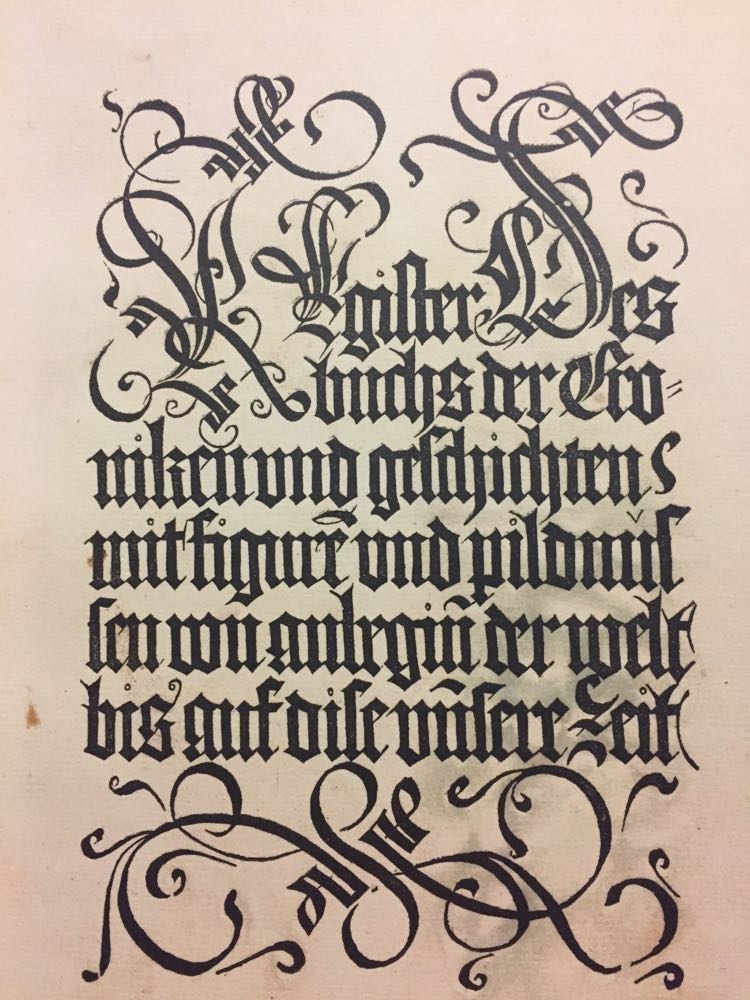 REgiſter Des
buchs der Cro=
niken vnd geſchichten
mit figurē vnd pildnuſ
ſen von anbegin̄ der welt
bis auf diſe vn̄ſere Zeit